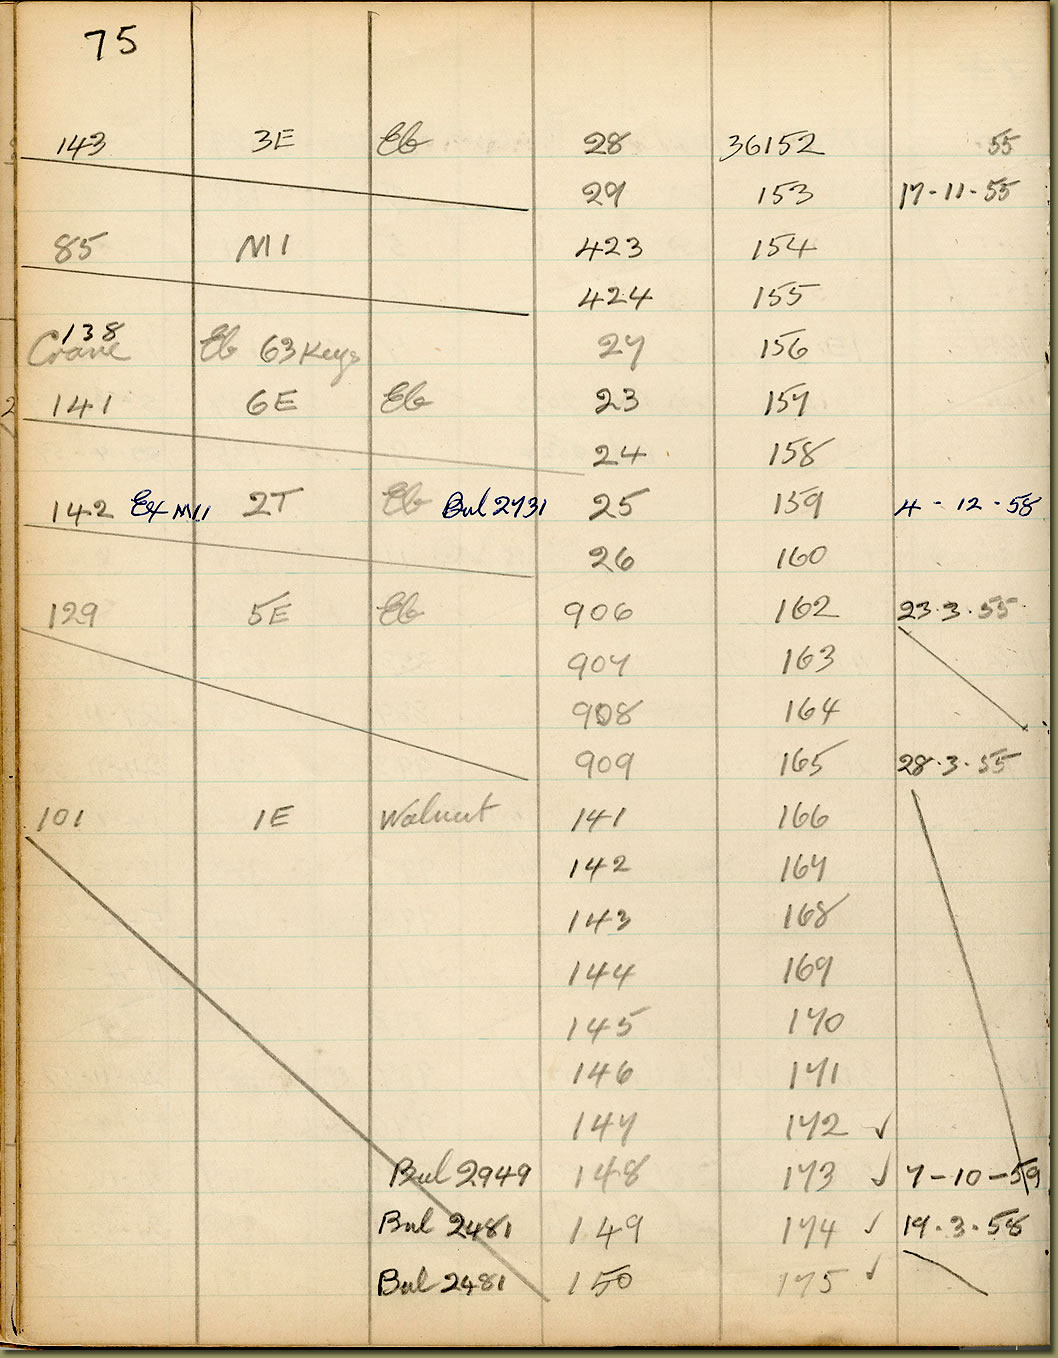 75
143 3E Eb 28 36152 55
29 153 17-11-55
85 M1 423 154
424 155
138
Crane Eb 63 Keys 27 156
141 6E Eb 23 157
24 158
142 Ex M11 2T Eb Bul 2731 25 159 4-12-58
26 160
129 5E Eb 906 162 23.3.55
907 163
908 164
909 165 28.3.55
101 1E Walnut 141 166
142 167
143 168
144 169
145 170
146 171
147 172 ✓
Bul 2949 148 173 ✓ 7-10-59
Bul 2481 149 174 ✓ 19.3.58
Bul 2481 150 175 ✓